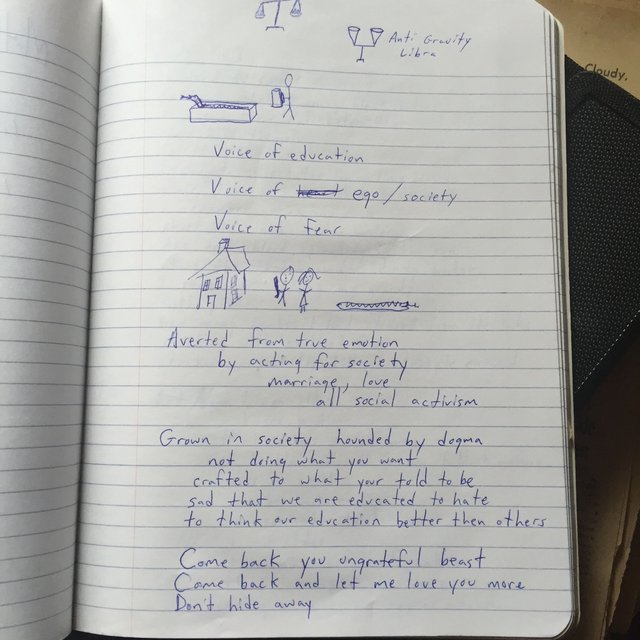 Anti Gravity
Libra
Cloudy,
Voice of education
Voice of heart ego/society
Voice of fear
Averted from true emotion
by acting for society
marriage, love
all social activism
Grown in society hounded by dogma
not doing what you want
crafted to what your told to be
sad that we are educated to hate
to think our education better then others
Come back you ungrateful beast
Come back and let me love you more
Don't hide away